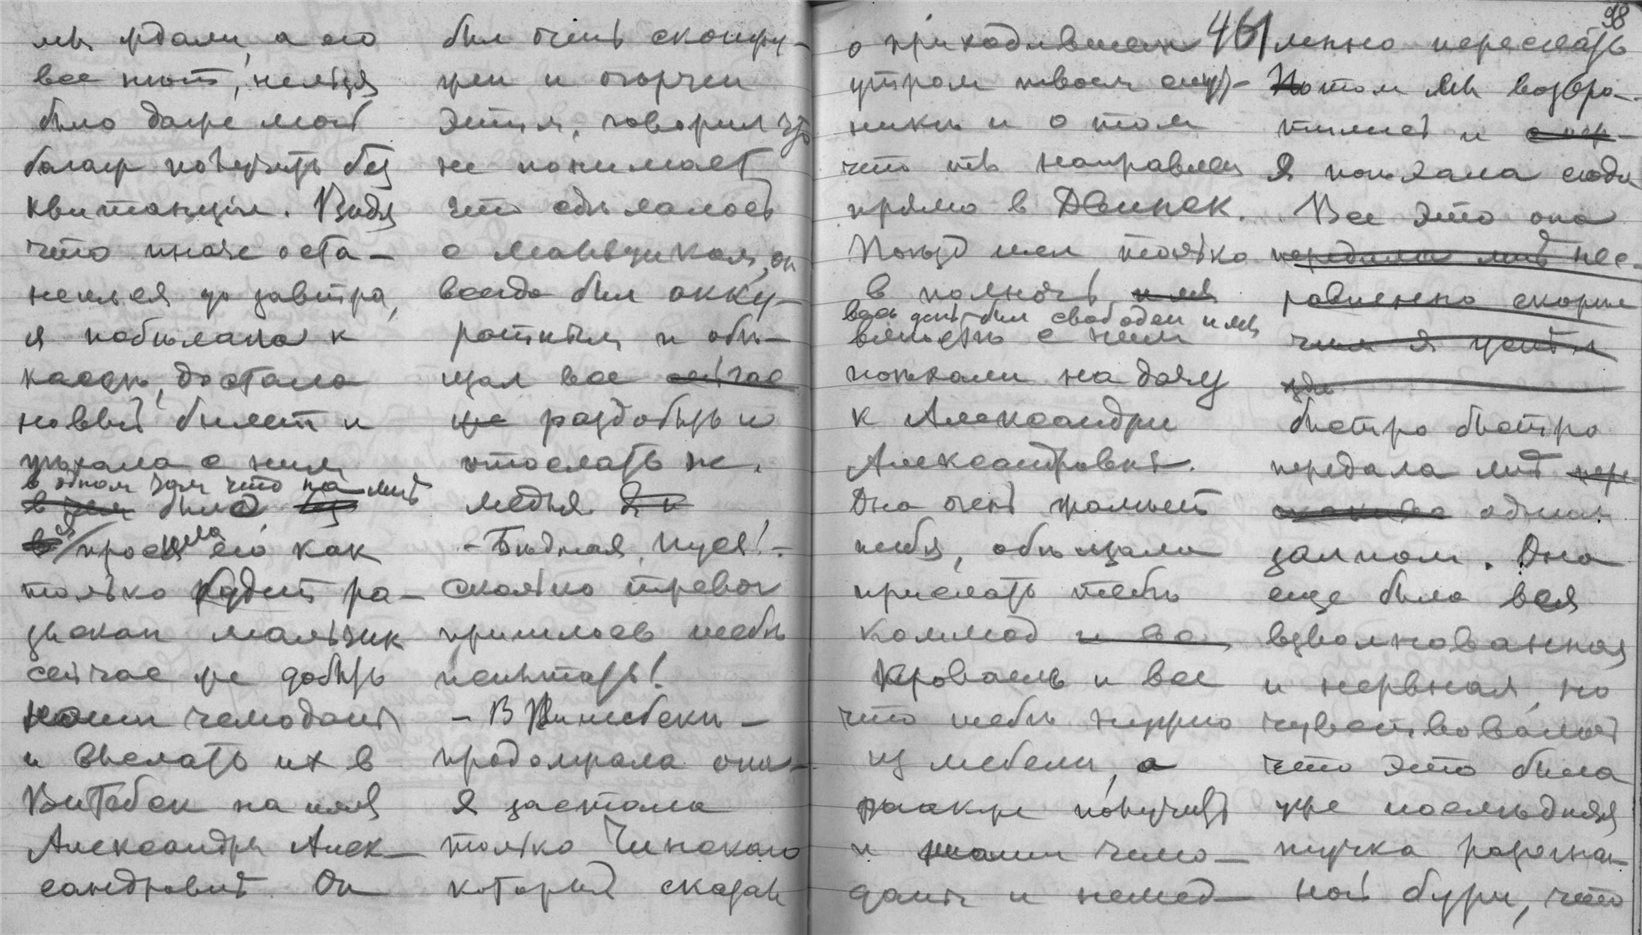 мы ждали, а его
все нет, нельзя
было даже мой
багаж получить без
квитанции. Видя
что иначе оста-
немся до завтра,
я побежала к
кассе, достала
новый билет и
уехала с ним
в одном том что на мнѣ
было
я просила его как
только будет ра-
зыскан мальчик
сейчас же добыть
наши чемоданы
и выслать их в
Витебск на имя
Александры Алек-
сандровны. Он
был очень сконфу-
жен и огорчен
этим, говорил что
не понимает
что сдѣлалось
с мальчиком, он
всегда был акку-
ратным и обѣ-
щал все сейчас
же раздобыть и
отослать не-
медля
- Бѣдная, Муся! -
сколько тревог
пришлось тебѣ
испытать!
- В Витебскѣ -
продолжала она -
я застала
только Чинскаго
который сказал
98
461
о приходившем
утром твоем
и о том
что ты направлен
прямо в Двинск.
Поѣзд шел только
в полночь,
весь день был свободен и мы
вмѣстѣ с ним
поѣхали на дачу
к Александрѣ
Александровнѣ.
Она очень жалѣет
тебя, обѣщала
прислать тебѣ
комод и
кровать и все
что тебѣ нужно
из мебели, а
также получить
и наши чемо-
даны и немед-
ленно переслать
Потом мы возвра-
тились и
я поѣхала сюда
Все это она
передала мнѣ нес-
равненно скорѣе
чѣм я
быстро быстро
передала мнѣ
одним
залпом. Она
еще была вся
взволнованная
и нервная, но
чувствовалось
что это была
уже послѣдняя
тучка разсѣян-
ной бури, что